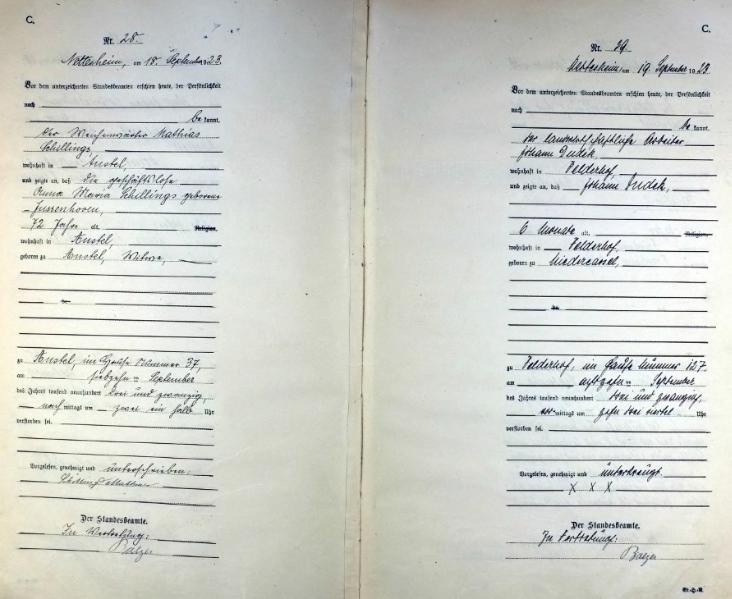 C.
Nr. 28.
Nettesheim, am 18. September 1923.
Vor dem unterzeichneten Standesbeamten erschien heute, der Persönlichkeit
nach
be kannt,
der Weichenwärter Mathias
Schillings
wohnhaft in Anstel,
und zeigte an, daß die geschäftslose
Anna Maria Schillings geborene
72 Jahre alt, Religion,
wohnhaft in Anstel,
geboren zu Anstel, Witwe,
zu Anstel, im Hause Nummer 37,
am siebzehn ten September
des Jahres tausend neunhundert drei und zwanzig,
nach mittags um zwei ein halb Uhr
verstorben sei.
Vorgelesen, genehmigt und unterschrieben.
Schillings Mathias
Der Standesbeamte.
In Vertretung:
C.
Nr. 29
Nettesheim, am 19. September 1923.
Vor dem unterzeichneten Standesbeamten erschien heute, der Persönlichkeit
nach
be kannt,
der landwirtschaftliche Arbeiter
Johann Dudek,
wohnhaft in Velderhof,
und zeigte an, daß Johann Dudek,
6 Monate alt, Religion,
wohnhaft in Velderhof,
geboren zu Niedercassel,
zu Velderhof, im Hause Nummer 127,
am achtzehn ten September
des Jahres tausend neunhundert drei und zwanzig,
vor mittags um zehn drei viertel Uhr
verstorben sei.
Vorgelesen, genehmigt und unterkreuzt.
X X X
Der Standesbeamte.
In Vertretung: